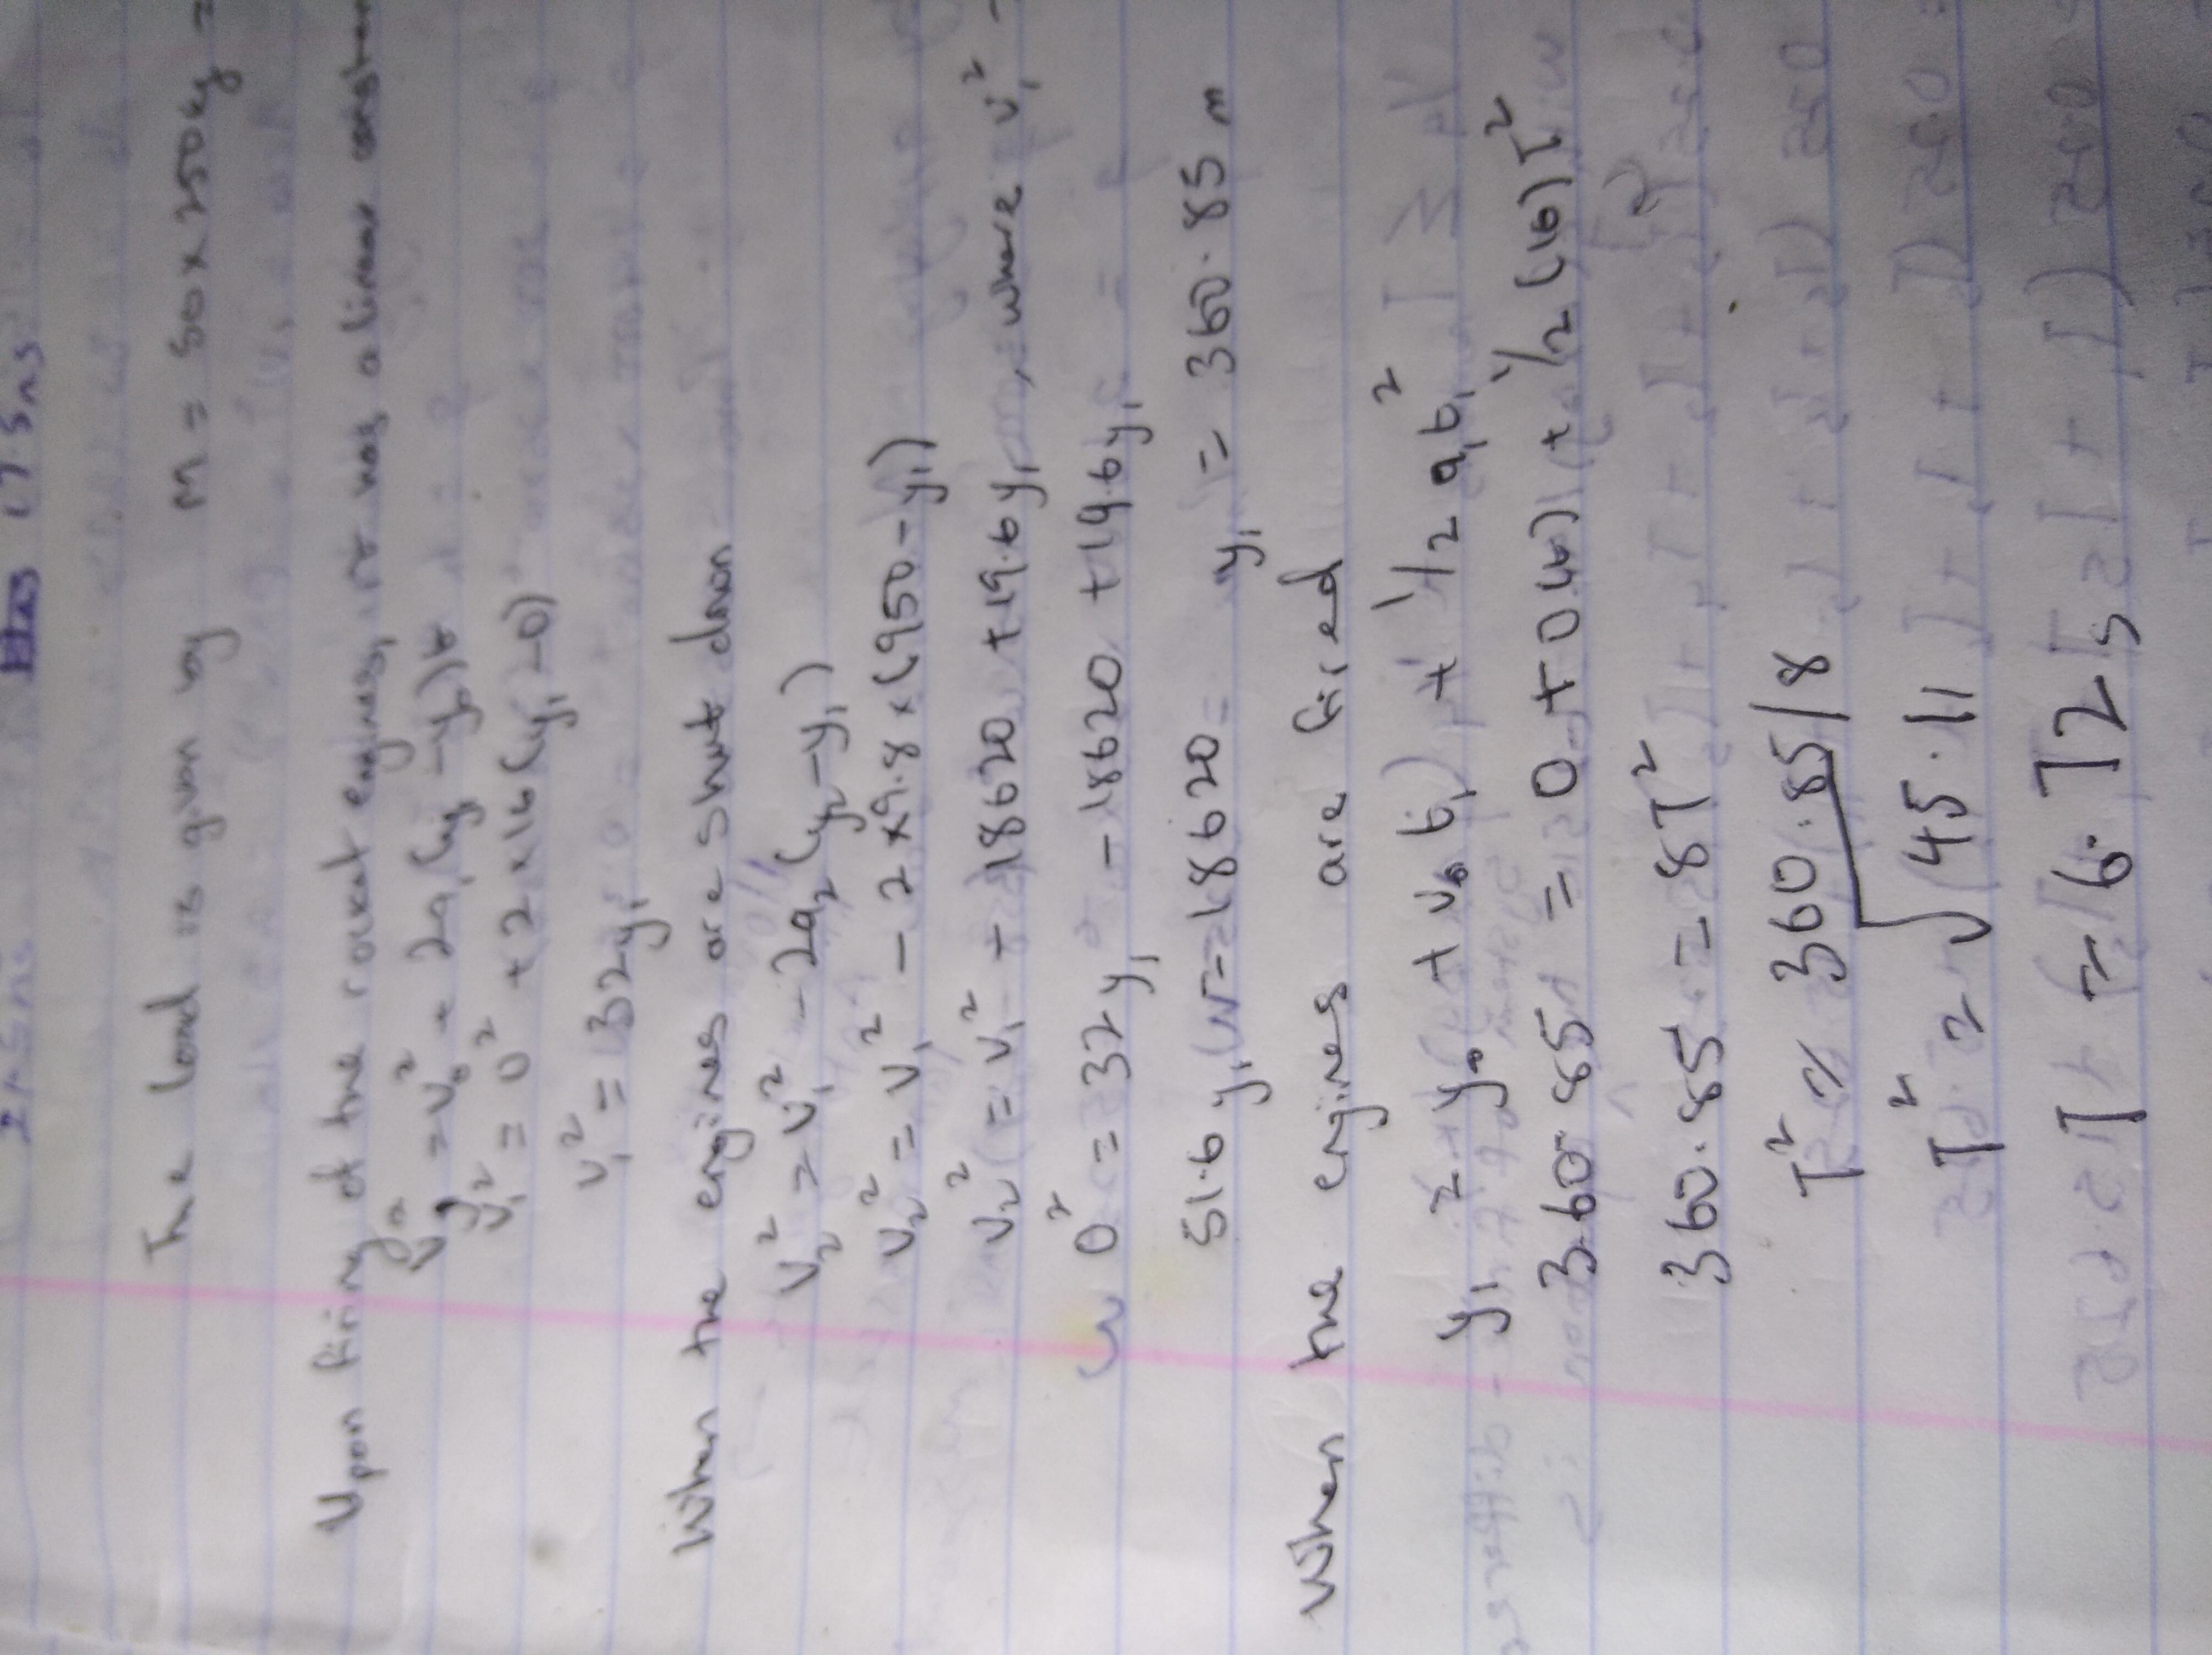 The load is given by m = 50 x 250kg =
Upon firing of the rocket engines, it has a linear constan
v₁² = v₀² + 2a₁(y₁ - y₀)
v₁² = 0² + 2 x 16(y₁ - 0)
v₁² = 32y₁
When the engines are shut down
v₂² = v₁² - 2a₂(y₂ - y₁)
v₂² = v₁² - 2 x 9.8 x (950 - y₁)
v₂² = v₁² - 18620 + 19.6y₁, where v₁² =
0² = 32y₁ - 18620 + 19.6y₁
51.6y₁ = 18620 y₁ = 360.85 m
When the engines are fired
y₁ = y₀ + v₀t₁ + 1/2 a₁t₁²
360.85 = 0 + 0(t) + 1/2(16)T²
360.85 = 8T²
T² = 360.85/8
T² = √45.11
T = 6.72s